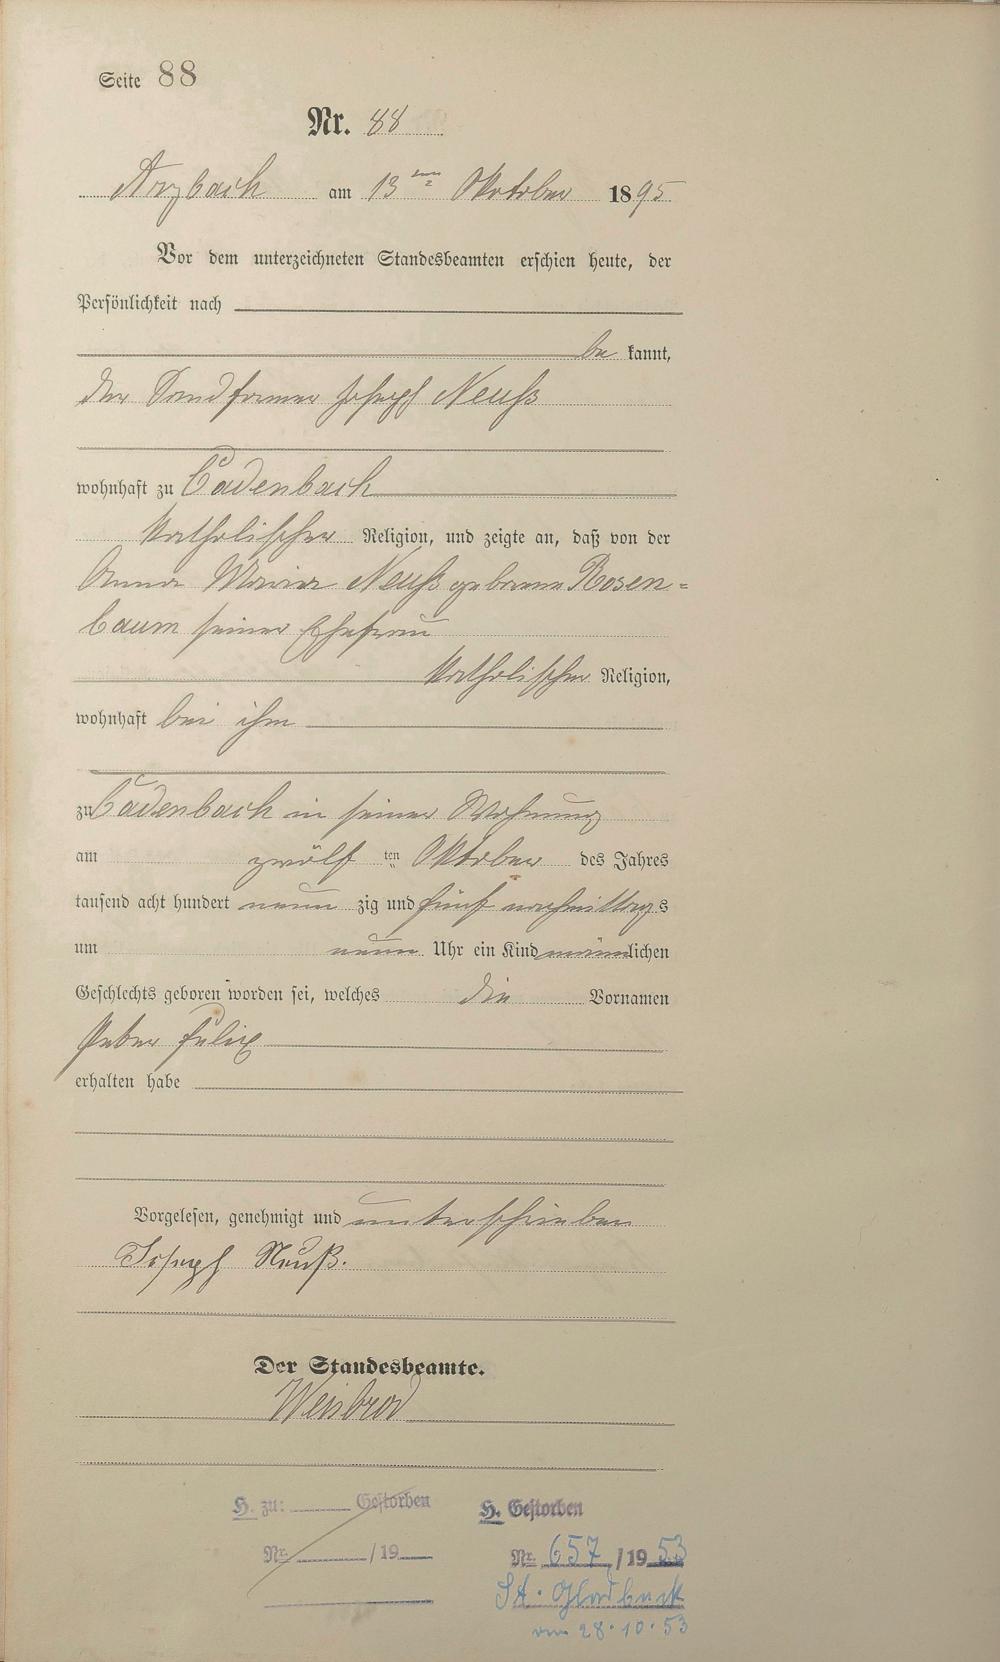 Seite 88
Nr. 88
Arzbach am 13ten Oktober 1895
Vor dem unterzeichneten Standesbeamten erschien heute, der
Persönlichkeit nach
be kannt,
der Sandformer Joseph Neuß
wohnhaft zu Cadenbach
katholischer Religion, und zeigte an, daß von der
Anna Maria Neuß geborene Rosen=
baum seiner Ehefrau
katholischer Religion,
wohnhaft bei ihm
zu Cadenbach in seiner Wohnung
am zwölf ten Oktober des Jahres
tausend acht hundert neun zig und fünf nachmittags
um neun Uhr ein Kind männlichen
Geschlechts geboren worden sei, welches die Vornamen
Peter Felix
erhalten habe
Vorgelesen, genehmigt und unterschrieben
Joseph Neuß.
Der Standesbeamte.
Weisbrod
H. zu: Gestorben
Nr. /19
H. Gestorben
Nr. 657 /1953
St. Gladbeck
vom 28.10.53